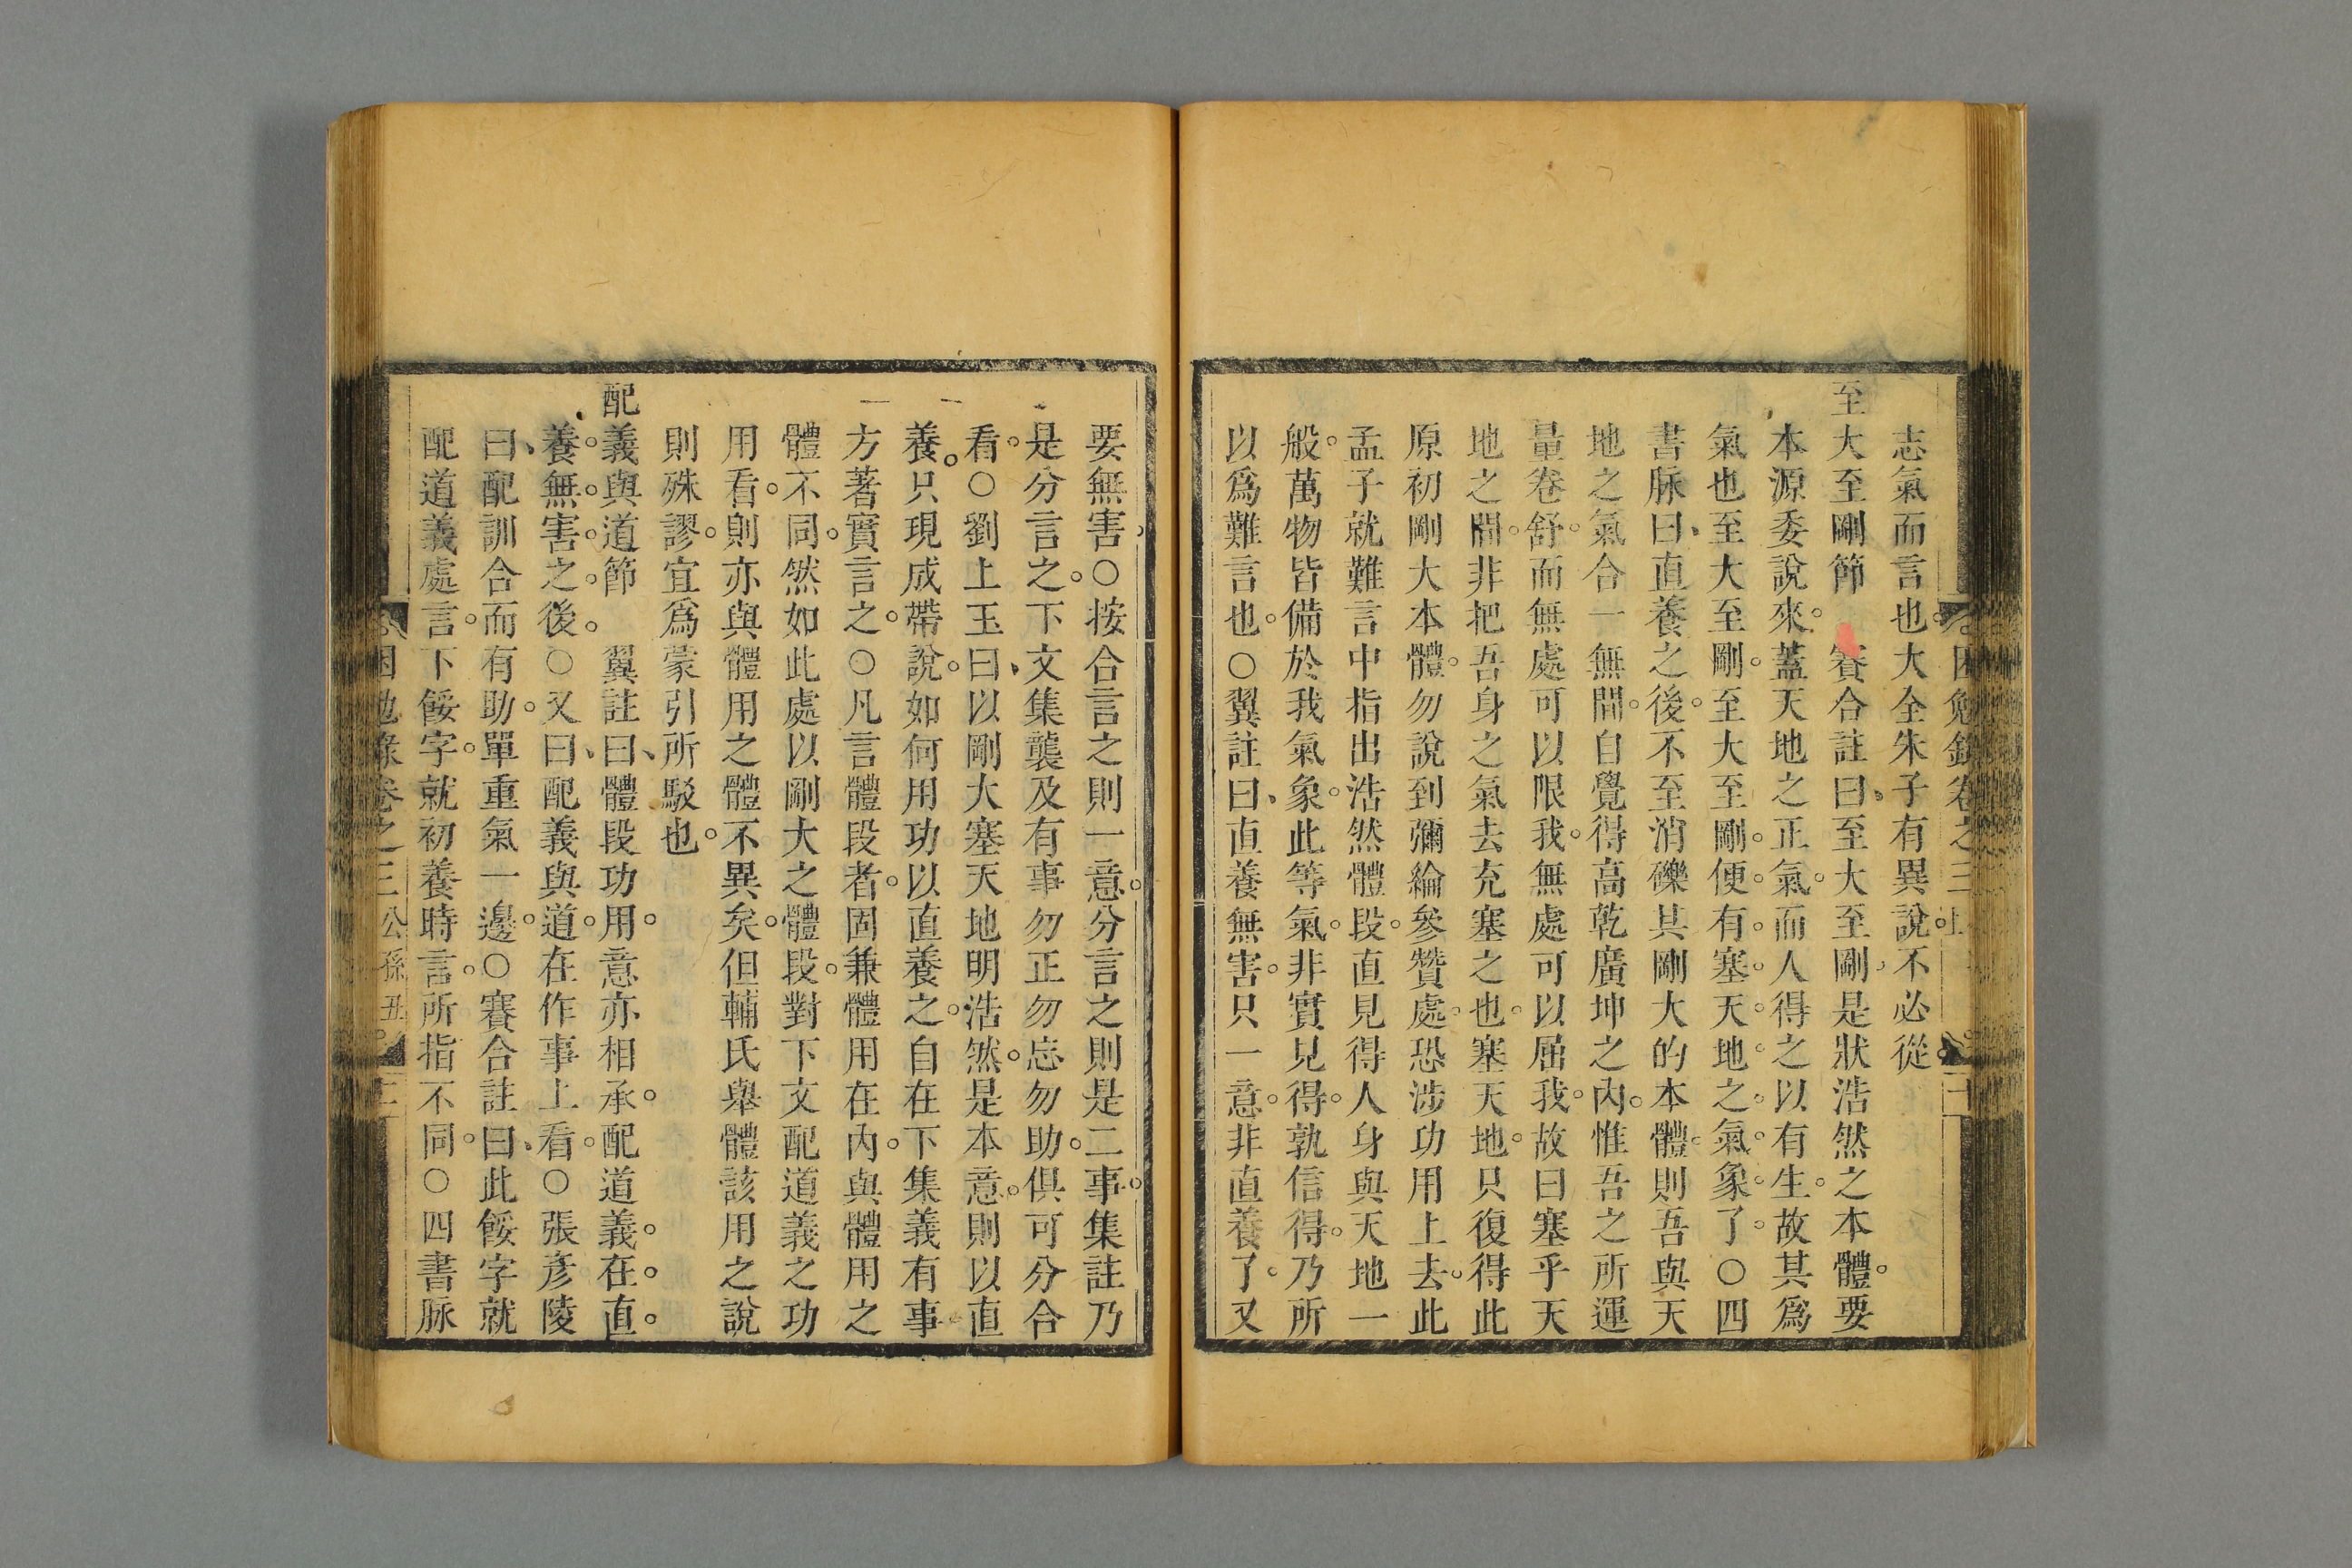 志氣而言也大全朱子有異說不必從
至大至剛節　賽合註曰至大至剛是狀浩然之本體要
本源委說來蓋天地之正氣而人得之以有生故其爲
氣也至大至剛至大至剛便有塞天地之氣象了○四
書脉曰直養之後不至消磔其剛大的本體則吾與天
地之氣合一無間自覺得高乾廣坤之內惟吾之所運
量卷舒而無處可以限我無處可以屈我故曰塞乎天
地之間非把吾身之氣去充塞之也塞天地只復得此
原初剛大本體勿說到彌綸參贊處恐涉功用上去此
孟子就難言中指出浩然體段直見得人身與天地一
般萬物皆備於我氣象此等氣非實見得孰信得乃所
以爲難言也○翼註曰直養無害只一意非直養了又
要無害○按合言之則一意分言之則是二事集註乃
是分言之下文集襲及有事勿正勿忘勿助俱可分合
看○劉上玉曰以剛大塞天地明浩然是本意則以直
養只現成帶說如何用功以直養之自在下集義有事
方著實言之○凡言體段者固兼體用在內與體用之
體不同然如此處以剛大之體段對下文配道義之功
用看則亦與體用之體不異矣但輔氏舉體該用之說
則殊謬宜爲蒙引所駁也
配義與道節　翼註曰體段功用意亦相承配道義在直
養無害之後○又曰配義與道在作事上看○張彥陵
曰配訓合而有助單重氣一邊○賽合註曰此餒字就
配道義處言下餒字就初養時言所指不同○四書脉
困勉錄卷之三公孫丑